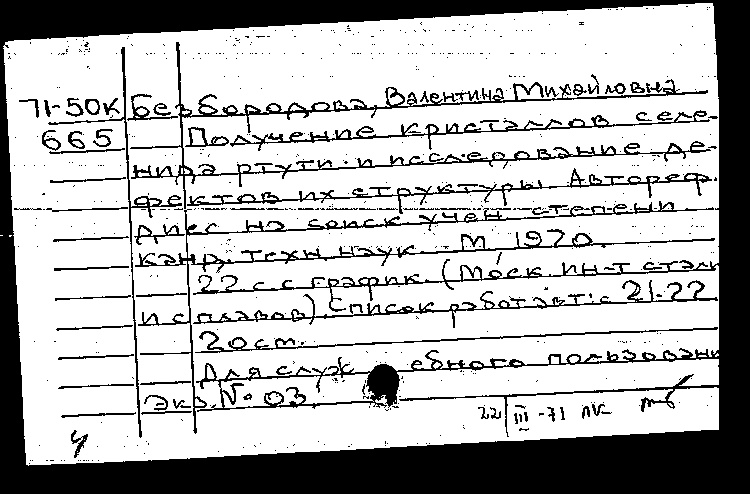 71-50К Безбородова, Валентина Михайловна
665 Получение кристаллов селе-
нида ртути и исследование де-
фектов их структуры. Автореф.
дисс на соиск учен степени
канд. техн. наук. - М, 1970.
22 с. с график. (Моск. ин-т стали
и сплавов). Список работ авт: с 21-22
20 см.
Для служебного пользовани
Экз. № 03.
22 III -71 ЛК
4